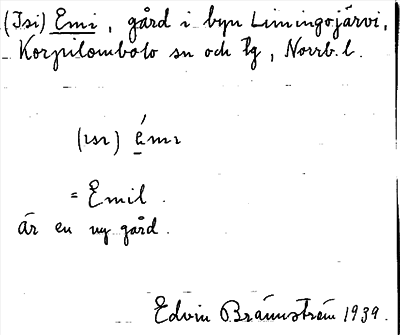 (Isi) Emi, gård i byn Liminingojärvi,
Korpilombolo sn och tg, Norrb. l.
(ısı) émı
= Emil.
är en ny gård.
Edvin Brännström 1939.